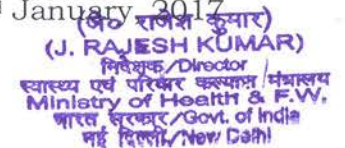 January, 2017
(जे० राजेश कुमार)
(J. RAJESH KUMAR)
निदेशक/Director
स्वास्थ्य एवं परिवार कल्याण मंत्रालय
Ministry of Health & F.W.
भारत सरकार/Govt. of India
नई दिल्ली/New Delhi